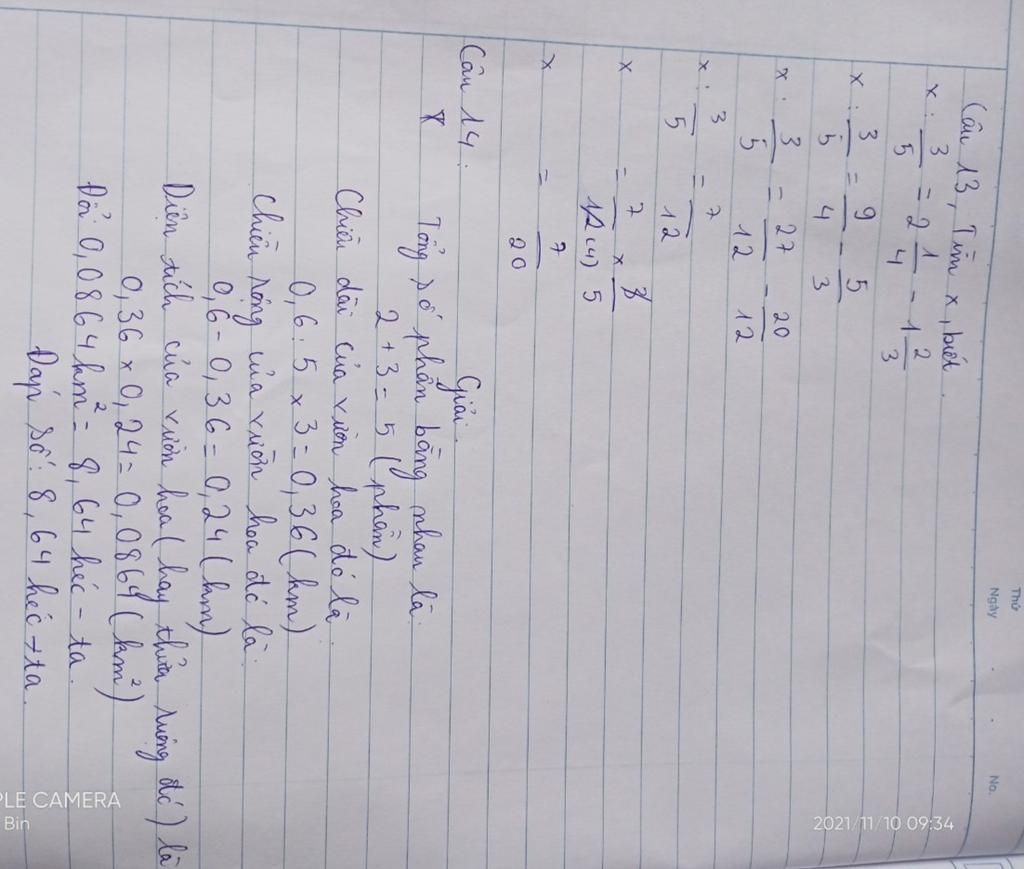 Thứ
Ngày . . No.
Câu 13, Tìm x, biết
x : 3/5 = 2 1/4 - 1 2/3
x : 3/5 = 9/4 - 5/3
x : 3/5 = 27/12 - 20/12
x : 3/5 = 7/12
x = 7/12(4) x 3/5
x = 7/20
Câu 14: Giải.
Tổng số phần bằng nhau là:
2 + 3 = 5 (phần)
Chiều dài của vườn hoa đó là:
0,6 : 5 x 3 = 0,36 (km)
Chiều rộng của vườn hoa đó là:
0,6 - 0,36 = 0,24 (km)
Diện tích của vườn hoa (hay thửa ruộng đó) là
0,36 x 0,24 = 0,0864 (km²)
Đổi: 0,0864 km² = 8,64 héc-ta.
Đáp số: 8,64 héc-ta.
PLE CAMERA
Bin
2021/11/10 09:34